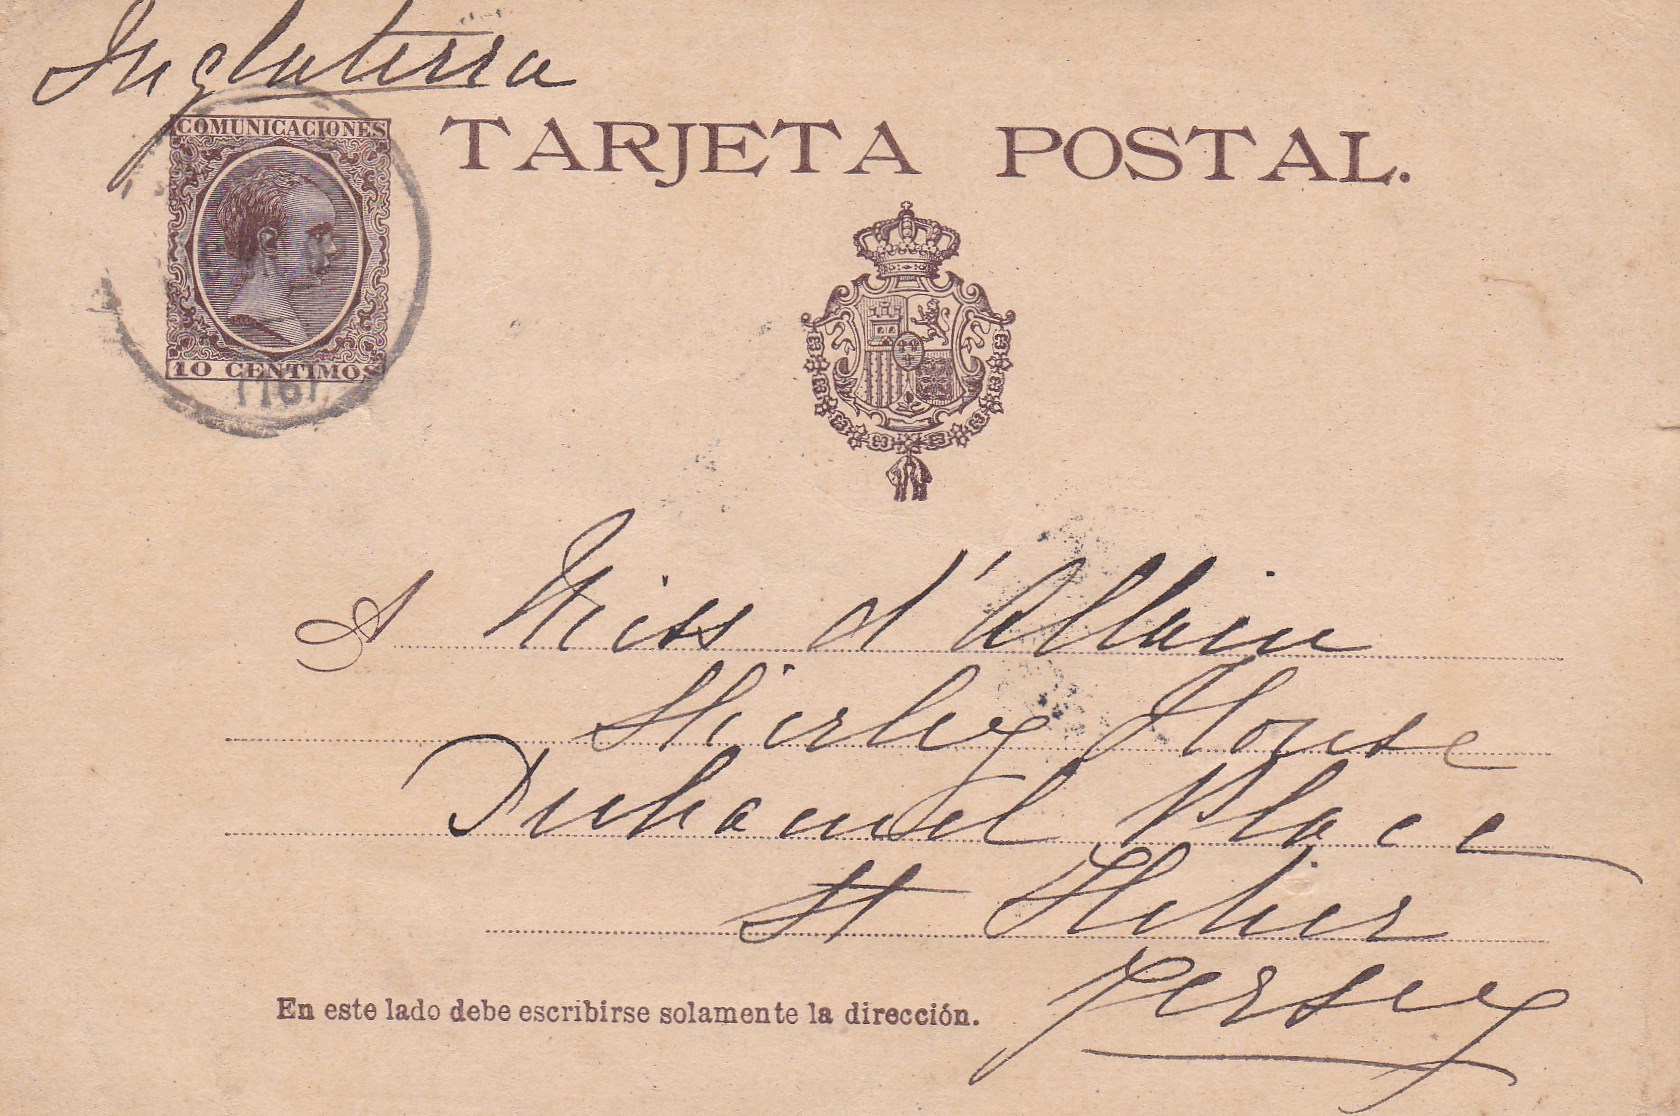 Inglaterra
COMUNICACIONES
TARJETA POSTAL.
10 CENTIMOS
A Miss d'Allain
Shirley House
Duhamel Place
St Helier
Jersey
En este lado debe escribirse solamente la dirección.